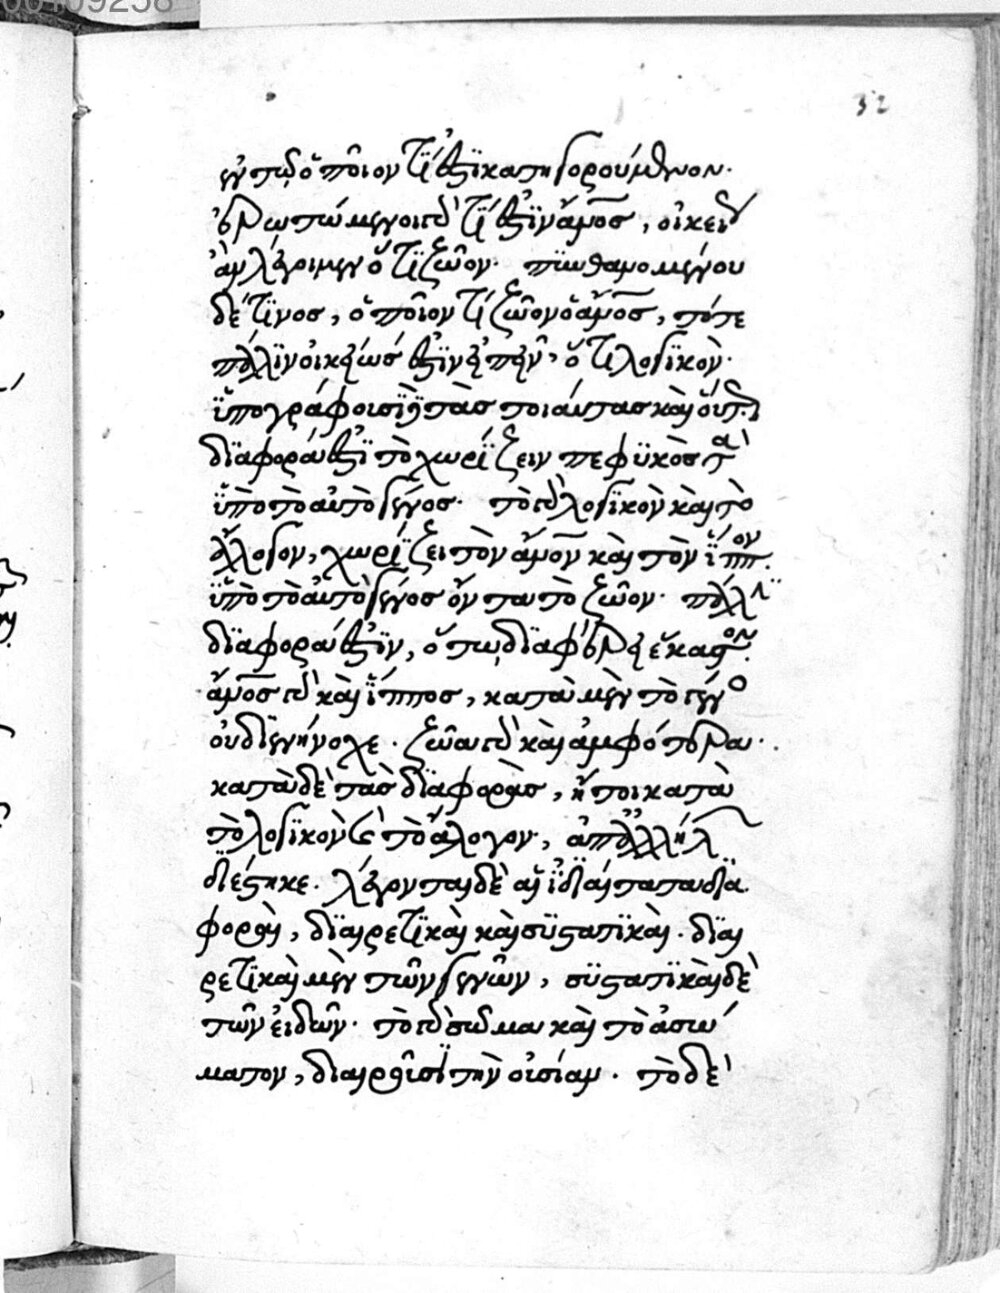 32
ἐν τῷ ὁποῖον τί ἐστι κατηγορούμενον.
ἐρωτώμενοι γὰρ τί ἐστιν ἄνθρωπος, οἰκεί
ἂν λέγοιμεν ὅτι ζῶον. πυνθανομένου
δέ τινος, ὁποῖον τί ζῶον ὁ ἄνθρωπος, τότε
πάλιν οἰκείως ἐστὶν εἰπεῖν, ὅτι λογικόν.
ὑπογράφουσι
διαφορά ἐστι τὸ χωρίζειν πεφυκὸς τὰ
ὑπὸ τὸ αὐτὸ γένος. τὸ γὰρ λογικὸν καὶ τὸ
ἄλογον, χωρίζει τὸν ἄνθρωπον καὶ τὸν ἵππον
ὑπὸ τὸ αὐτὸ γένος ὄντα τὸ ζῶον. πάλιν
διαφορά ἐστιν, ὅτῳ διαφέρει ἕκαστον.
ἄνθρωπος γὰρ καὶ ἵππος, κατὰ μὲν τὸ γένο
οὐ διενήνοχε. ζῶα γὰρ καὶ ἀμφότερα.
κατὰ δὲ τὰς διαφορὰς, ἤτοι κατὰ
τὸ λογικὸν καὶ τὸ ἄλογον, ἀπ' ἀλλήλ
διέστηκε. λέγονται δὲ αἱ ἰδιαίταται δια
φοραὶ, διαιρετικαὶ καὶ συστατικαὶ. διαι
ρετικαὶ μὲν τῶν γενῶν, συστατικαὶ δὲ
τῶν εἰδῶν. τὸ γὰρ σῶμα καὶ τὸ ἀσώ
ματον, διαιροῦσι τὴν οὐσίαν. τὸ δὲ